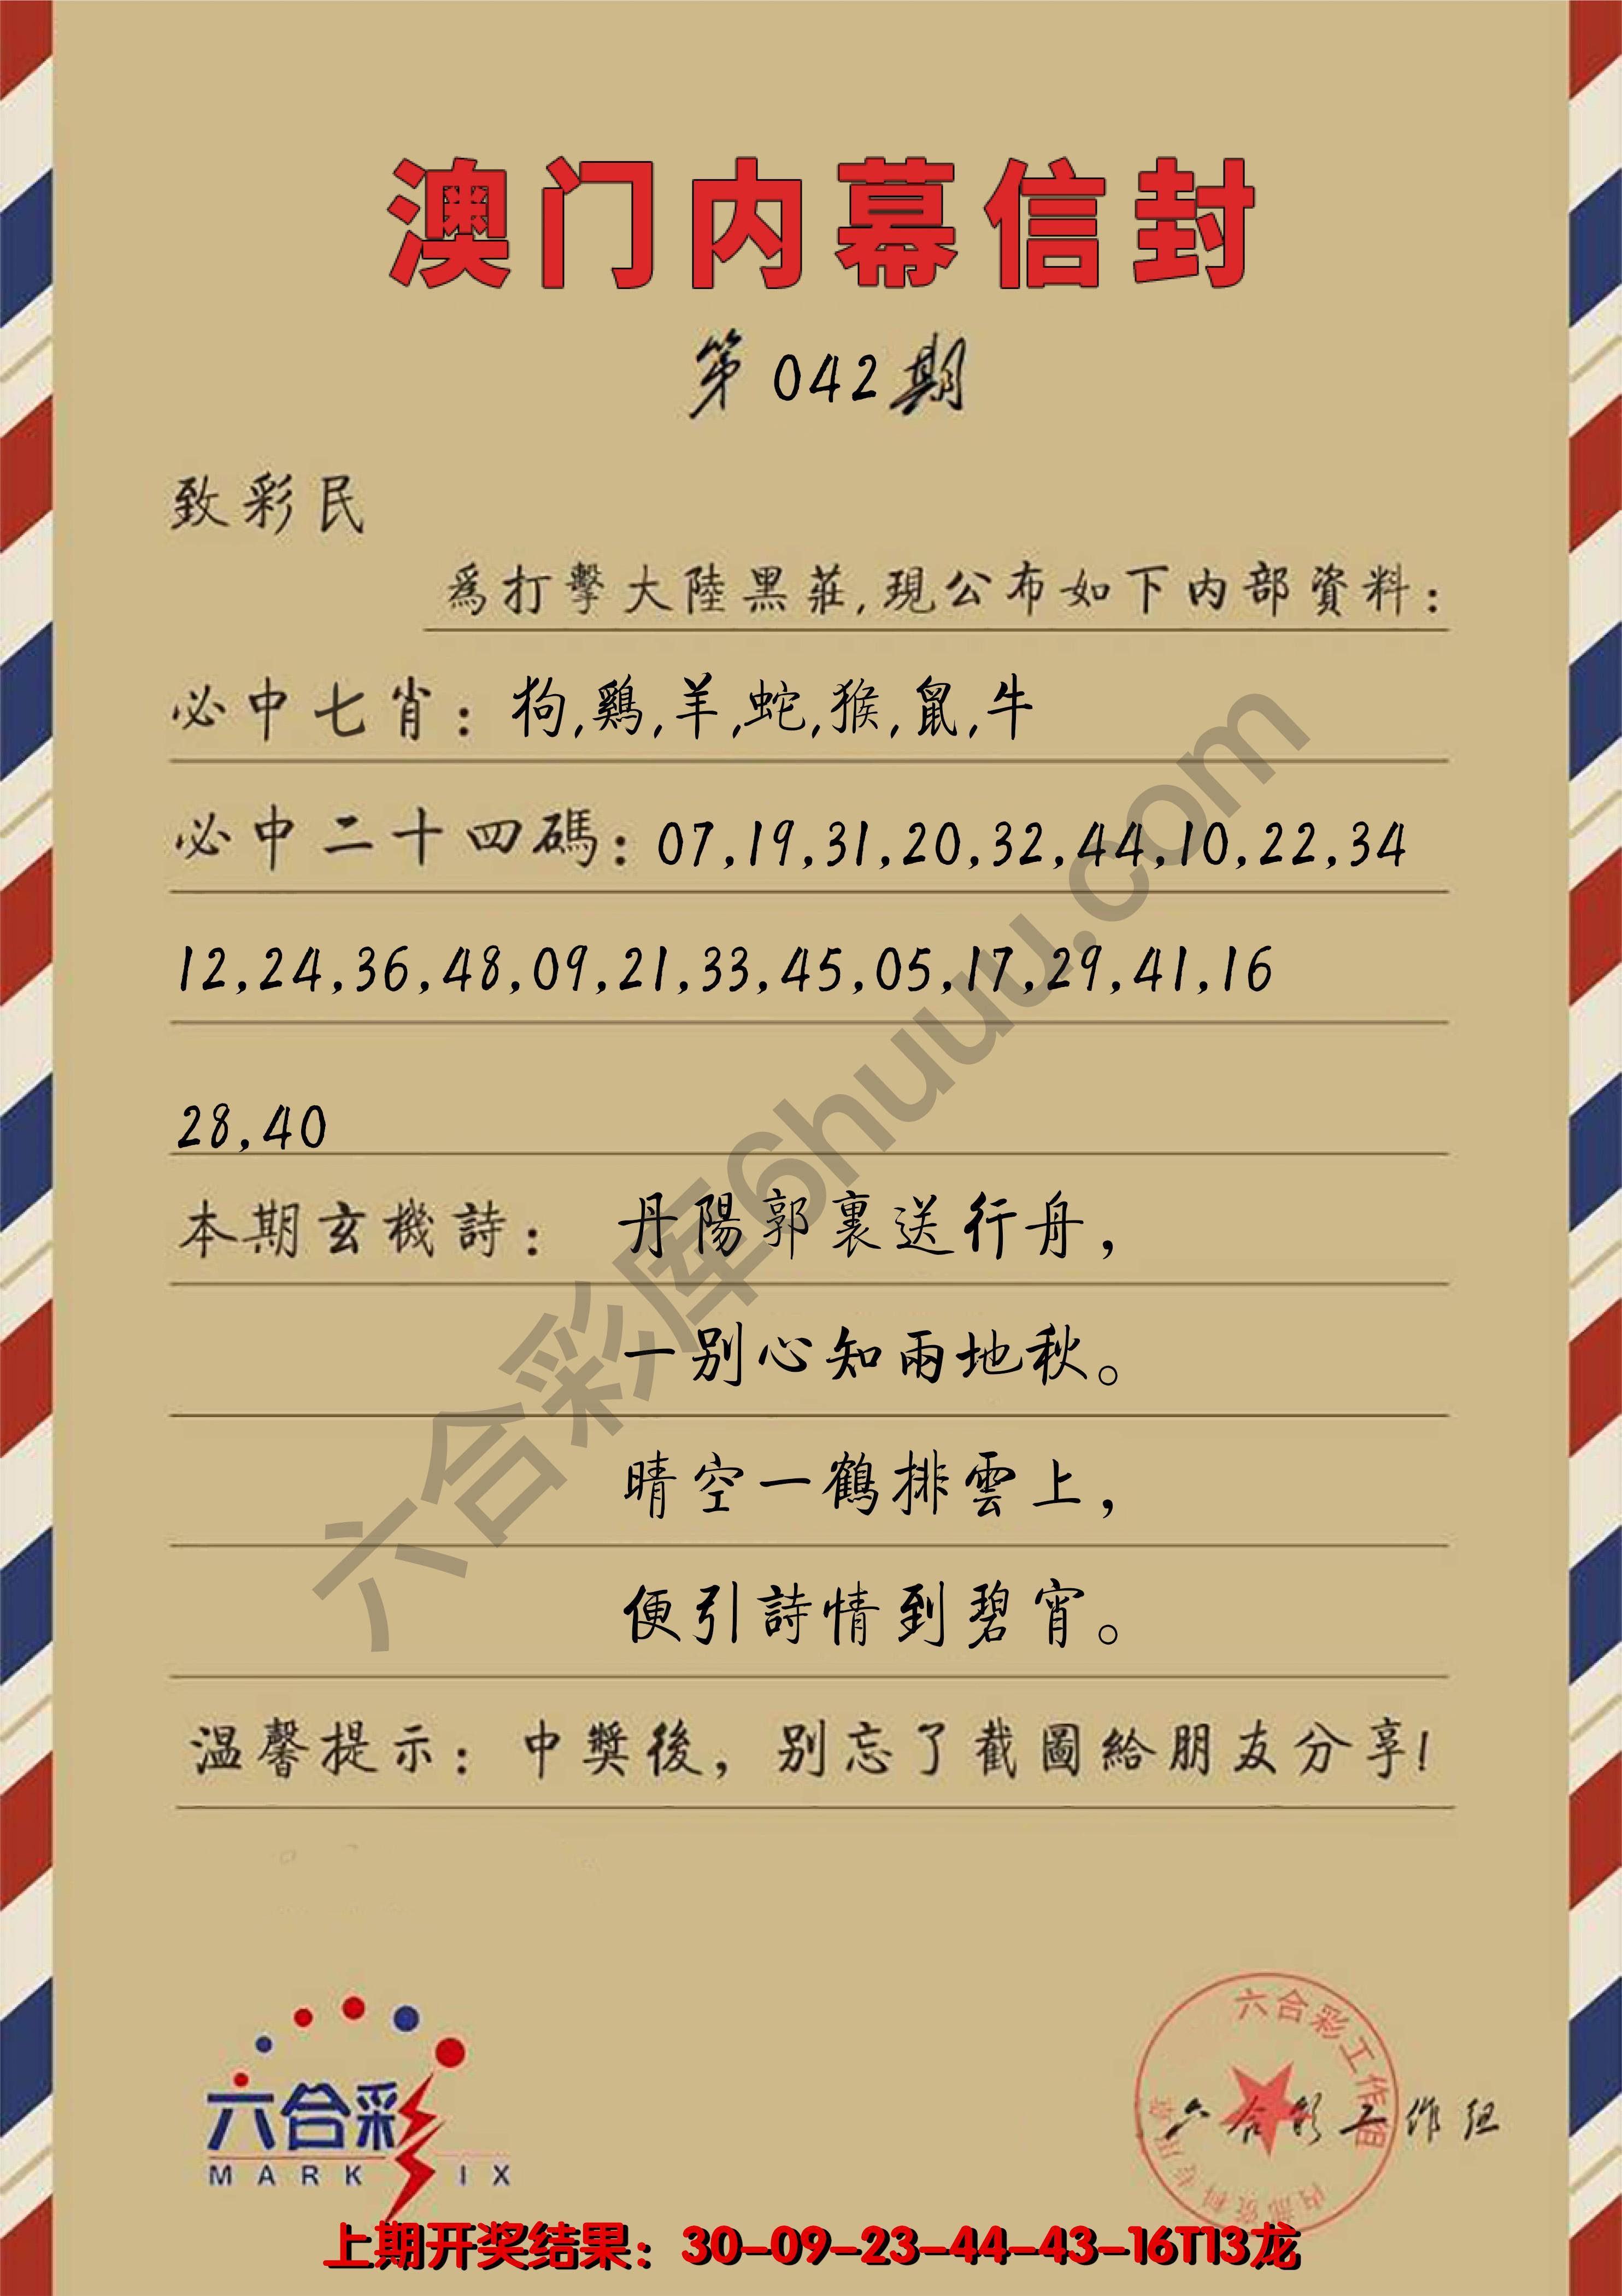 澳门内幕信封
第042期
致彩民
爲打擊大陸黑莊,現公布如下内部資料:
必中七肖: 狗,鷄,羊,蛇,猴,鼠,牛
必中二十四碼: 07,19,31,20,32,44,10,22,34
12,24,36,48,09,21,33,45,05,17,29,41,16
28,40
本期玄機詩: 丹陽郭裏送行舟,
一别心知兩地秋。
晴空一鶴排雲上,
便引詩情到碧宵。
温馨提示: 中獎後, 别忘了截圖給朋友分享!
六合彩库6huuu.com
六合彩
MARK SIX
六合彩工作组
内部资料专用章
六合彩工作组
上期开奖结果: 30-09-23-44-43-16T13龙